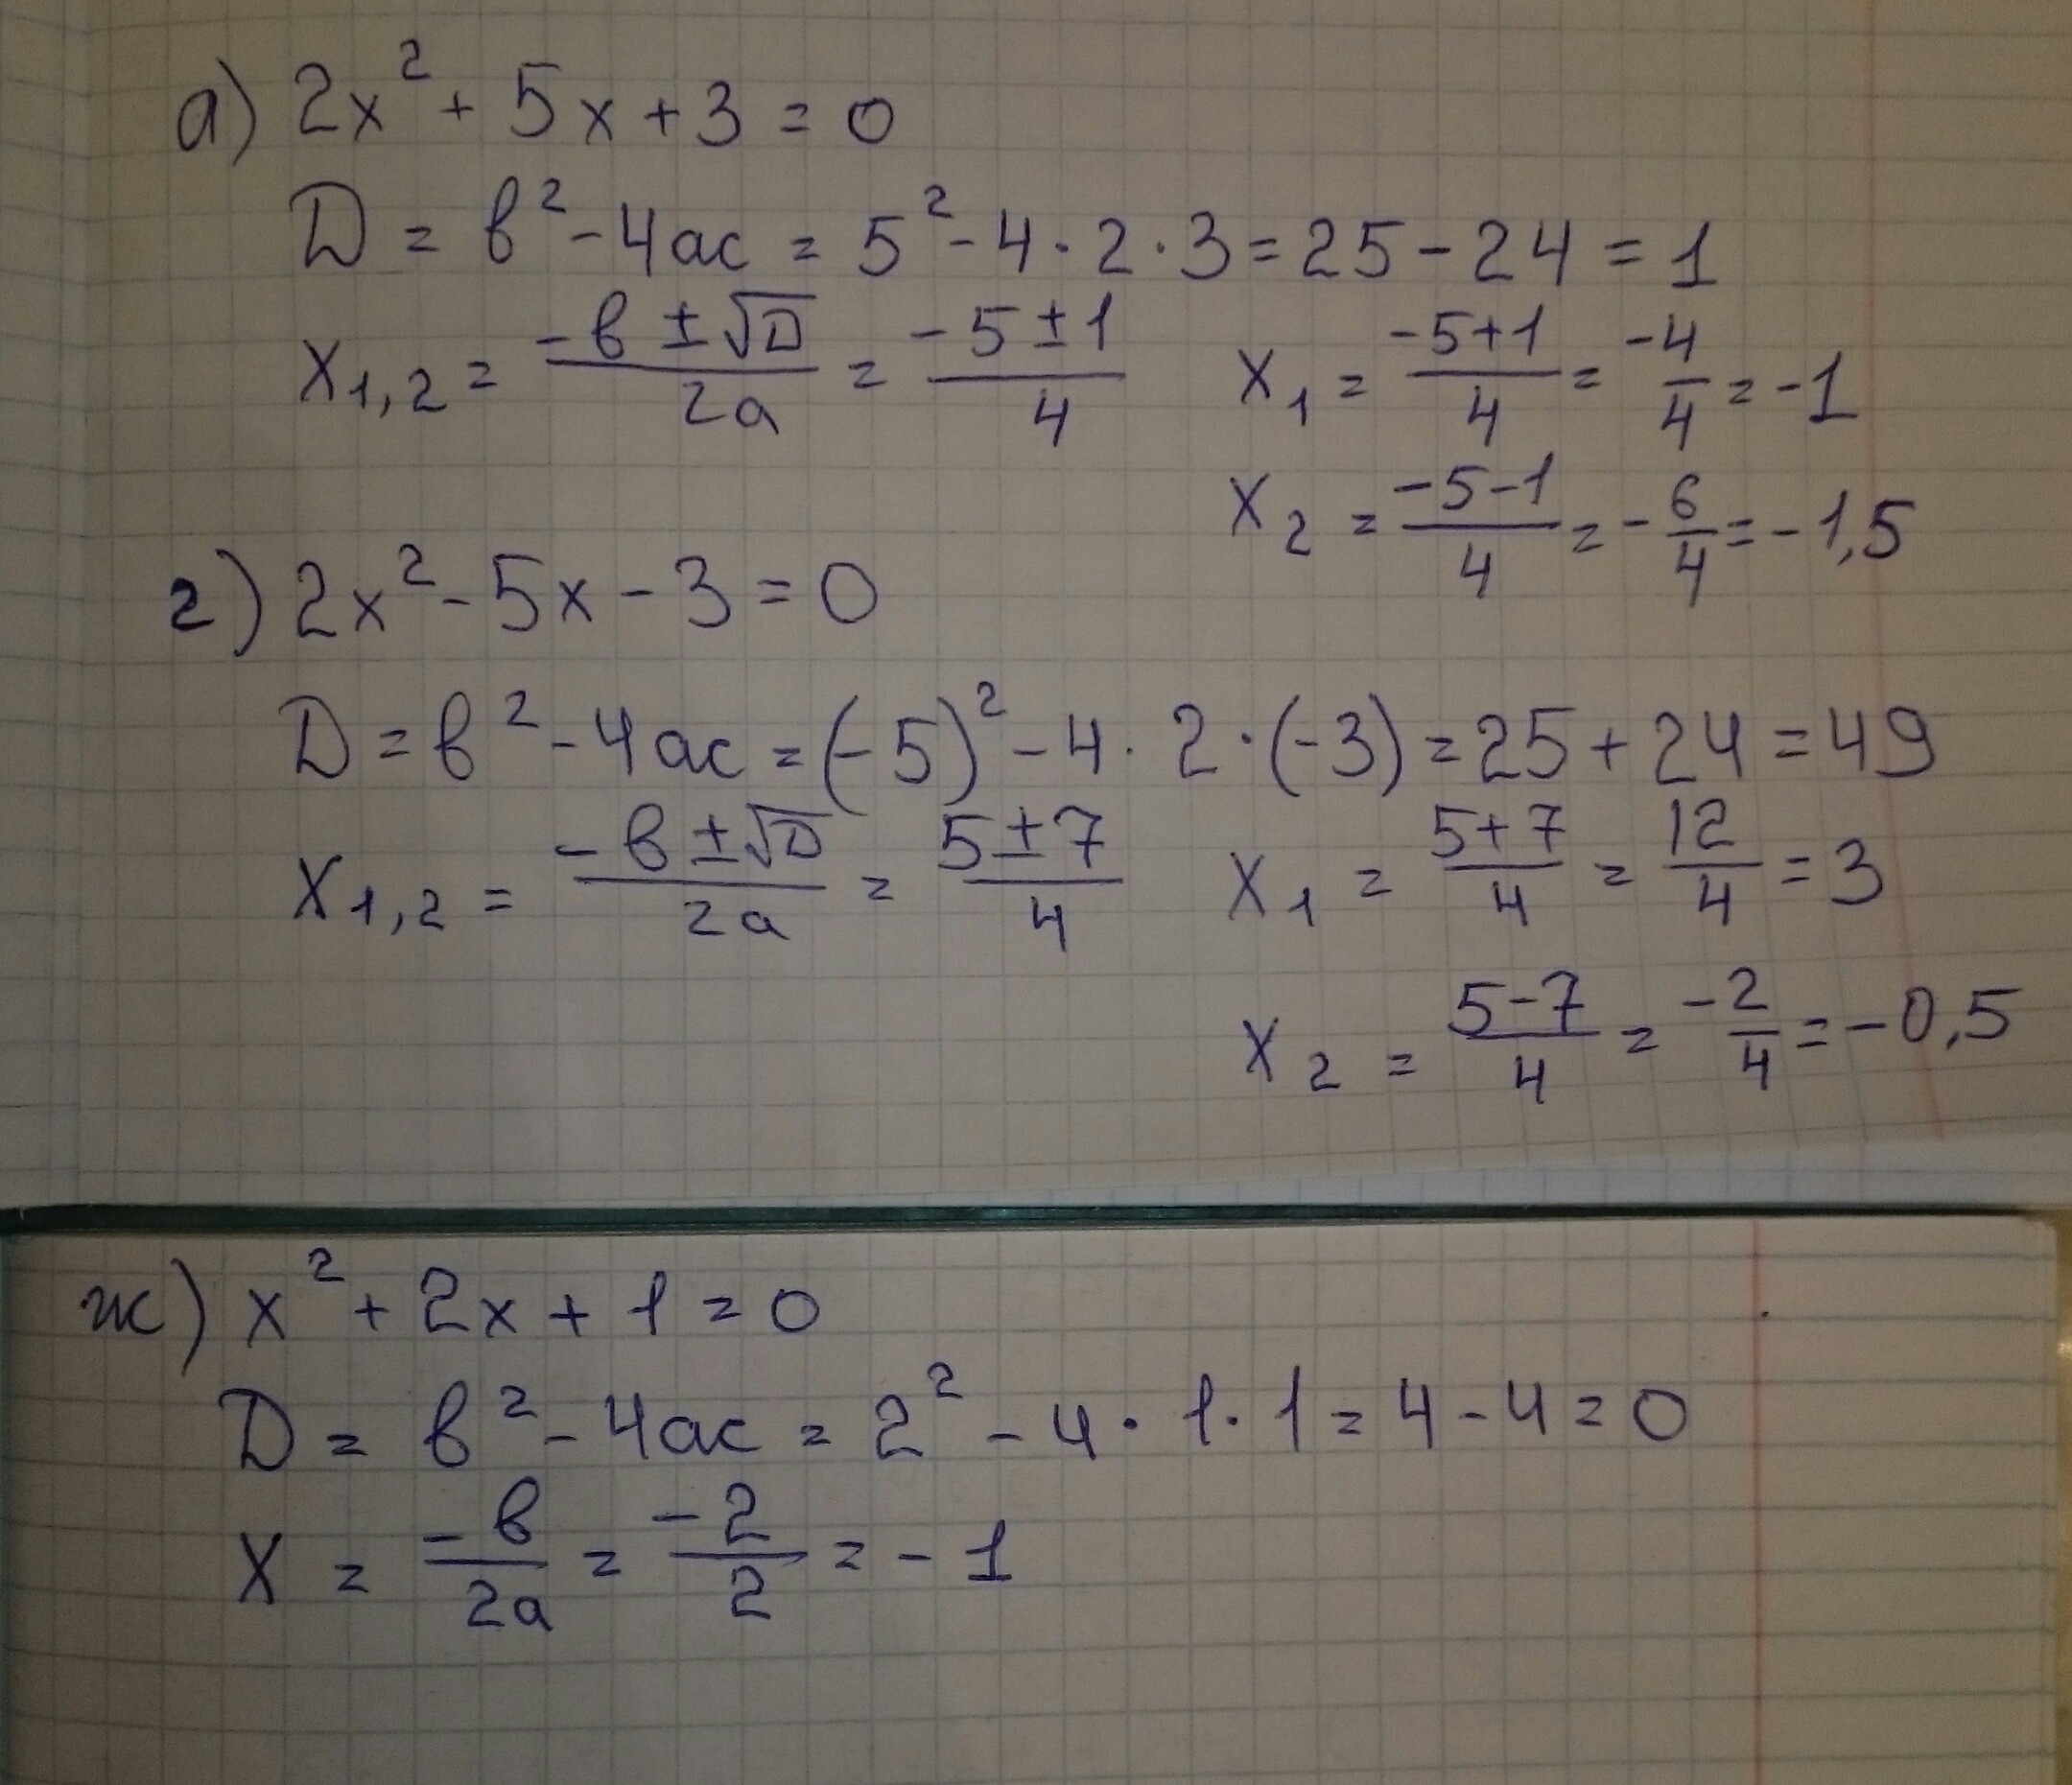 а) 2x² + 5x + 3 = 0
D = в² - 4ac = 5² - 4 · 2 · 3 = 25 - 24 = 1
X₁,₂ = (-в ± √D)/(2a) = (-5 ± 1)/4    X₁ = (-5+1)/4 = -4/4 = -1
X₂ = (-5-1)/4 = -6/4 = -1,5
г) 2x² - 5x - 3 = 0
D = в² - 4ac = (-5)² - 4 · 2 · (-3) = 25 + 24 = 49
X₁,₂ = (-в ± √D)/(2a) = (5 ± 7)/4    X₁ = (5+7)/4 = 12/4 = 3
X₂ = (5-7)/4 = -2/4 = -0,5
ж) x² + 2x + 1 = 0
D = в² - 4ac = 2² - 4 · 1 · 1 = 4 - 4 = 0
X = -в/(2a) = -2/2 = -1